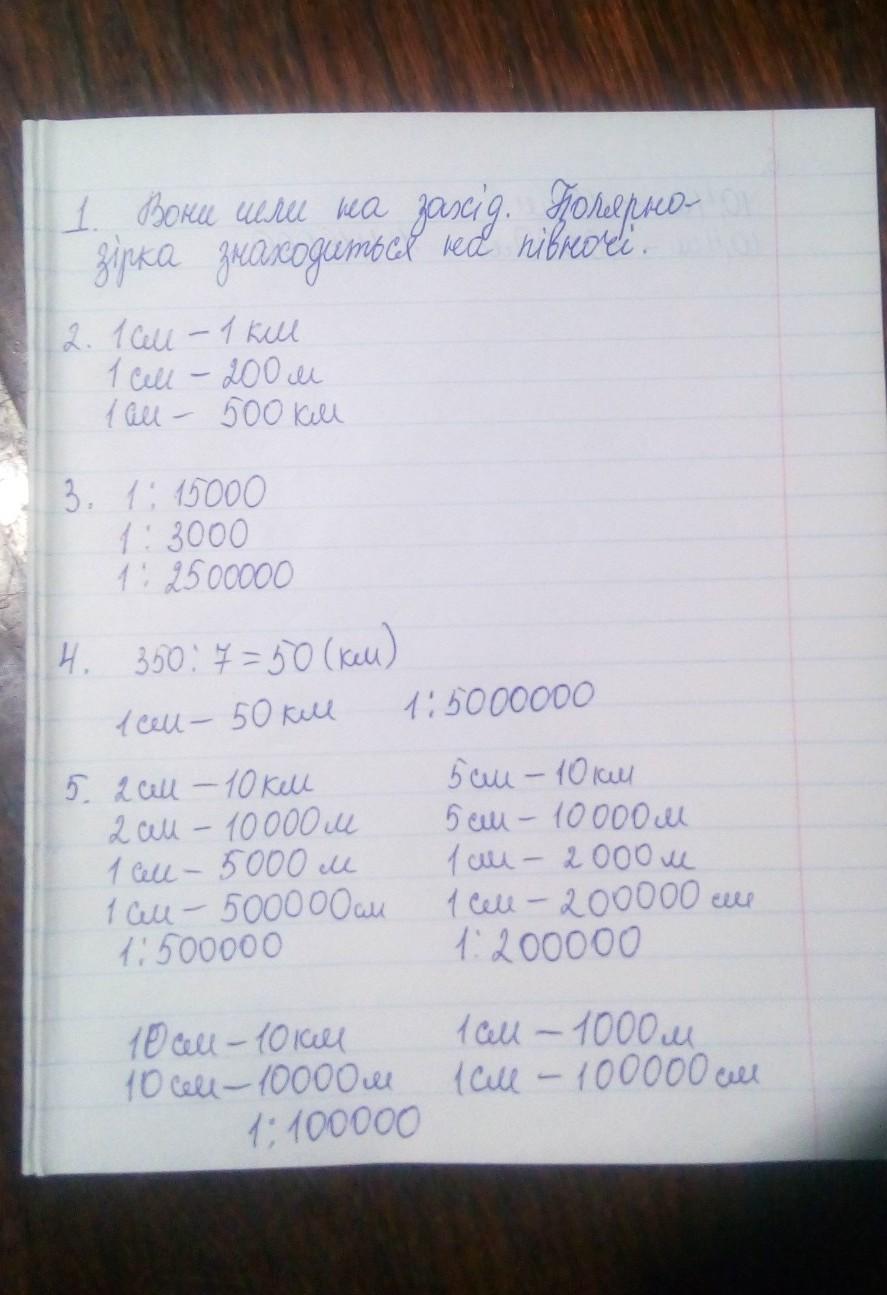 1. Вони шли на захід. Полярно-
зірка знаходиться на півночі.
2. 1см – 1 км
1см – 200 м
1см – 500 км
3. 1 : 15000
1 : 3000
1 : 2500000
4. 350 : 7 = 50 (км)
1см – 50 км 1 : 5000000
5. 2см – 10 км 5см – 10 км
2см – 10000м 5см – 10000м
1см – 5000 м 1см – 2000м
1см – 500000см 1см – 200000 см
1 : 500000 1 : 200000
10см – 10км 1см – 1000м
10см – 10000м 1см – 100000см
1 : 100000